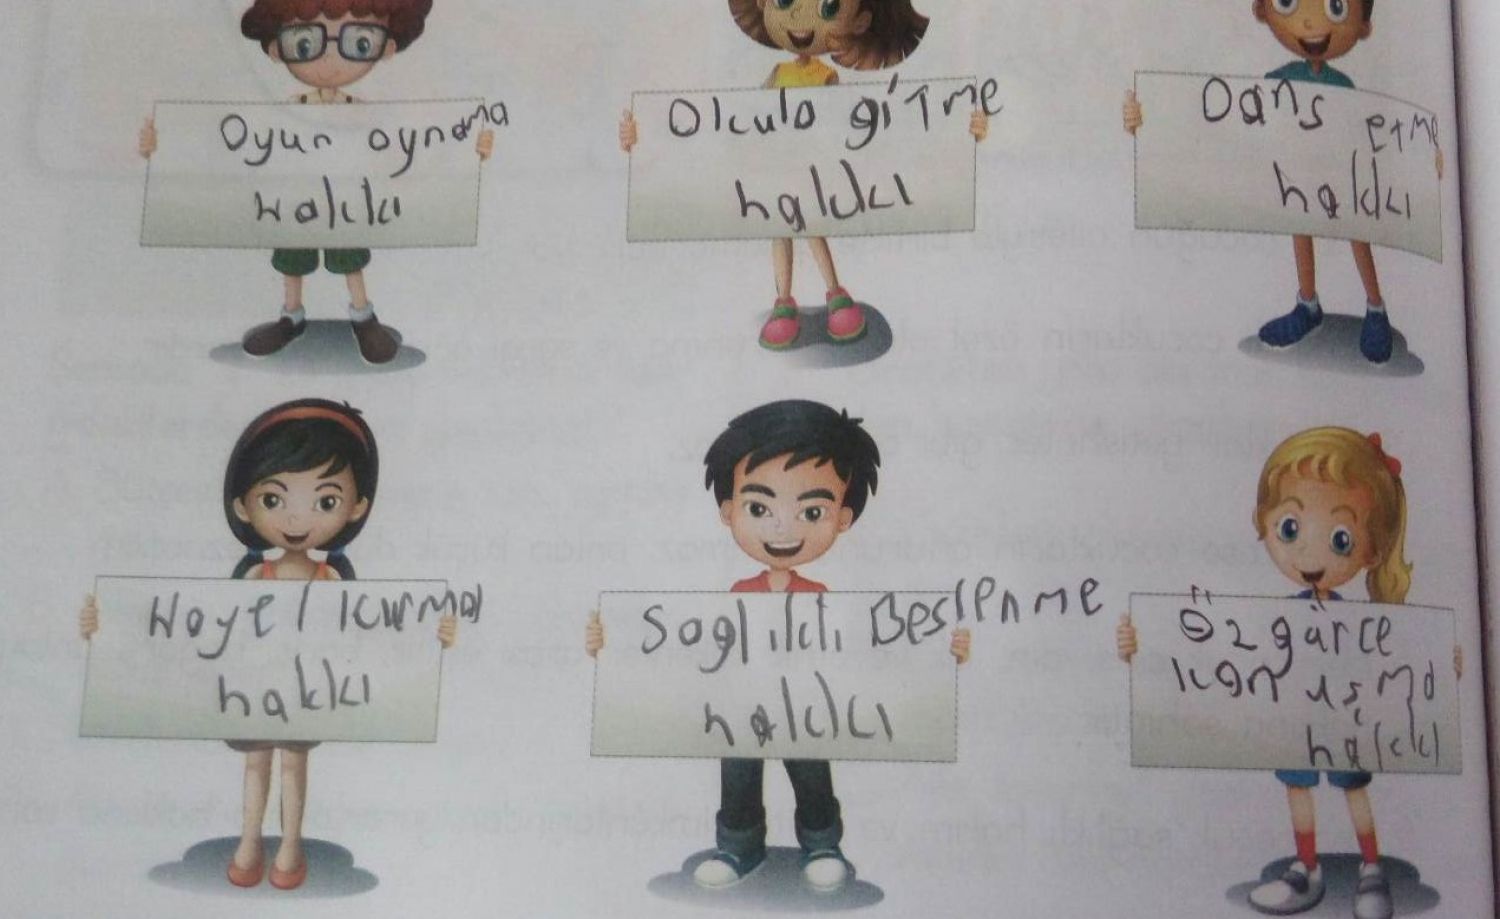 Oyun oynama
hakkı
Okula gitme
hakkı
Dans etme
hakkı
Hayel kurma
hakkı
Saglıklı Beslenme
hakkı
Özgürce
konuşma
hakkı